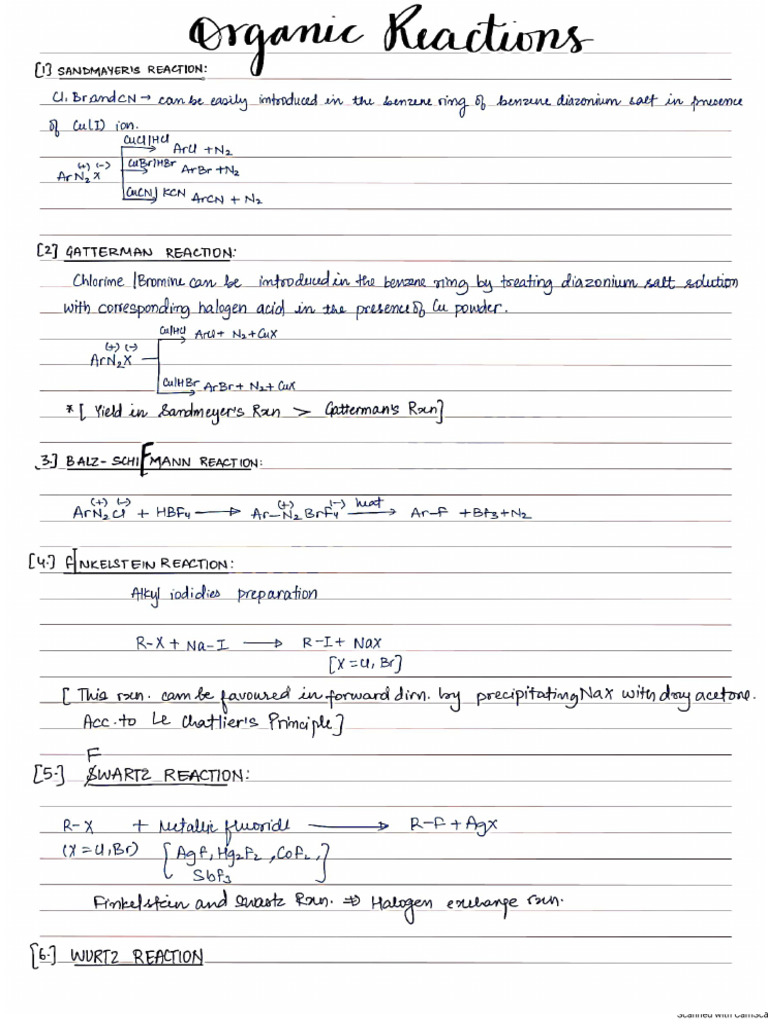 Organic Reactions
[1] SANDMAYER'S REACTION:
Cl, Br and CN → can be easily introduced in the benzene ring of benzene diazonium salt in presence
of Cu(I) ion.
CuCl/HCl
ArCl + N2
(+) (-)
ArN2X
CuBr/HBr
ArBr + N2
CuCN/KCN
ArCN + N2
[2] GATTERMAN REACTION:
Chlorine / Bromine can be introduced in the benzene ring by treating diazonium salt solution
with corresponding halogen acid in the presence of Cu powder.
Cu/HCl
ArCl + N2 + CuX
(+) (-)
ArN2X
Cu/HBr
ArBr + N2 + CuX
*[ Yield in Sandmeyer's Rxn > Gatterman's Rxn]
3.] BALZ-SCHIFMANN REACTION:
(+) (-) (+) (-) heat
ArN2Cl + HBF4 → Ar-N2 BrF4 → Ar-F + BF3 + N2
[4.] FINKELSTEIN REACTION:
Alkyl iodidies preparation
R-X + Na-I → R-I + NaX
[X = Cl, Br]
[ This rxn. can be favoured in forward dirn. by precipitating NaX with dry acetone.
Acc. to Le Chatlier's Principle]
F
[5.] SWARTZ REACTION:
R-X + Metallic fluoride → R-F + AgX
(X = Cl, Br) [AgF, Hg2F2, CoF2,
SbF3]
Finkelstein and Swartz Rxn. ⇒ Halogen exchange rxn.
[6.] WURTZ REACTION
Scanned with CamSca